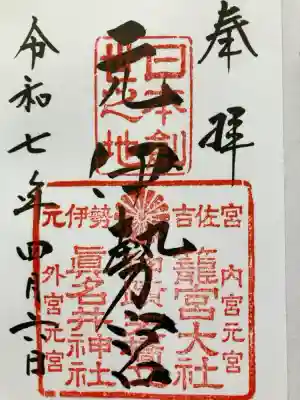 奉拝
日本創
世之地
元伊勢宮
元伊勢
吉佐宮
内宮元宮
籠宮大社
眞名井神社
外宮元宮
令和七年四月六日